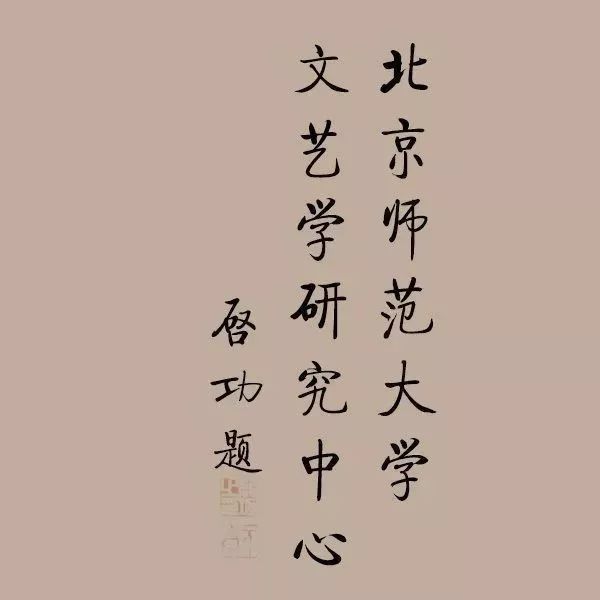 北京师范大学
文艺学研究中心
启功题